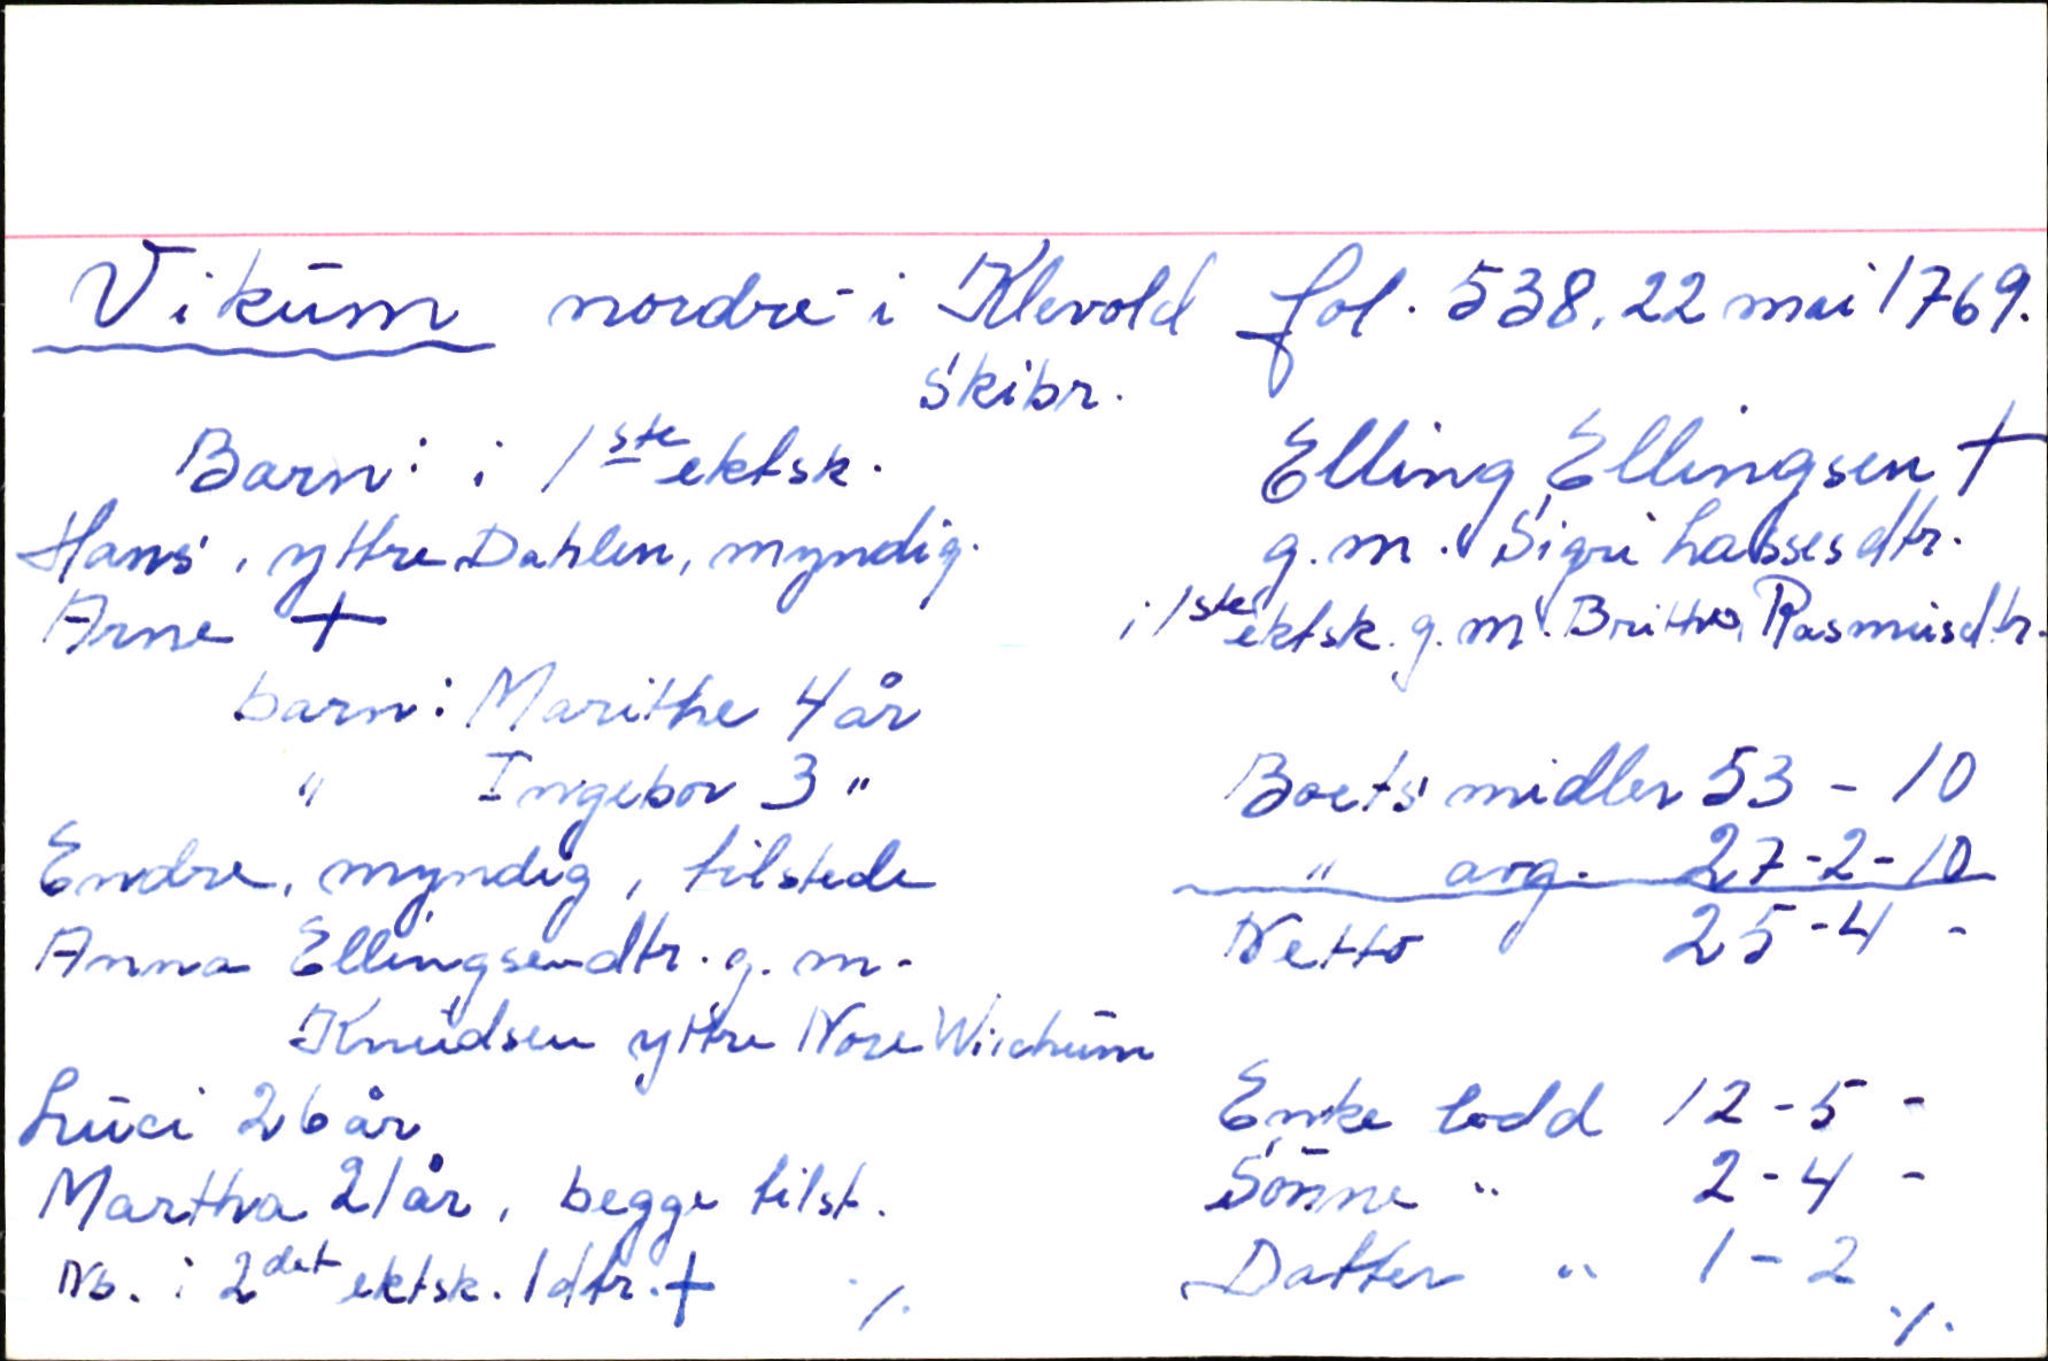 Vikŭm nordre i Klevold fol. 538, 22 mai 1769.
skibr.
Barn: i 1ste ektsk.
Hans, yttre Dahlen, myndig.
Arne +
barn: Marithe 4 år
" Ingebor 3 "
Endre, myndig, tilstede
Anna Ellingsendtr. g. m.
Knŭdsen yttre Nore Wiichŭm
Lŭci 26 år
Martha 21 år, begge tilst.
Nb. i 2det ektsk. 1 dtr. + ./.
Elling Ellingsen +
g. m. Sigri Lassesdtr.
i 1ste ektsk. g. m. Brittha Rasmŭsdtr.
Boets midler 53 - 10
" avg. 27-2-10
Netto 25-4 -
Enke lodd 12-5 -
Sønne " 2-4 -
Datter " 1-2
./.